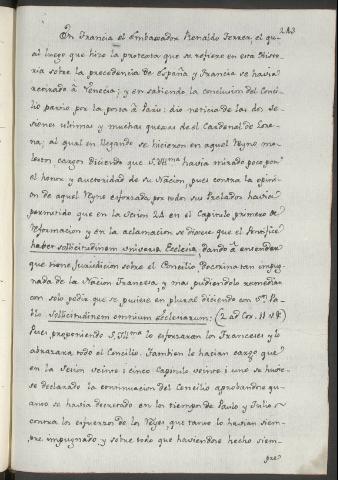 243
En Francia el Embaxador Renaldo Ferrer, el qu-
al luego que hizo la protexta que se refiere en esta Histo-
ria sobre la precedencia de España y Francia se havia
retirado à Venecia; y en sabiendo la conclusion del Conci-
lio partio por la posta à Paris: dio noticia de las dos Se-
siones ultimas y muchas quexas de el Cardenal de Lore-
na; al qual en llegando se hicieron en aquel Reyno mo-
lestos cargos diciendo que S. Ill.ma havia mirado poco por
el honor y autoridad de su Nacion, pues contra la opini-
on de aquel Reyno esforzada por todos sus Prelados havia
permitido que en la Sesion 24 en el Capitulo primero de
Reformacion y en la aclamacion se dixese que el Pontifice
haber sollicitudinem universæ Ecclesiæ dando à entender
que tiene Jurisdicion sobre el Concilio Doctrina tan impug-
nada de la Nacion Francesa, y mas pudiendolo remediar
con solo pedir que se pusiese en plural diciendo con Sn. Pa-
blo sollicitudinem omnium Ecclesiarum: (2 ad Cor. 11 v.
Pues, proponiendo S. Ill.ma lo esforzaran los Franceses y lo
abrazara todo el Concilio. Tambien le hacian cargo que
en la Sesion veinte i cinco Capitulo veinte i uno se huvie-
se declarado la continuacion del Concilio aprobandro qu-
anto se havia decretado en los tiempos de Paulo y Julio
contra los esfuerzos de los Reyes, que tanto lo havian siem-
pre impugnado y sobre todo que haviendose hecho siem-
pre